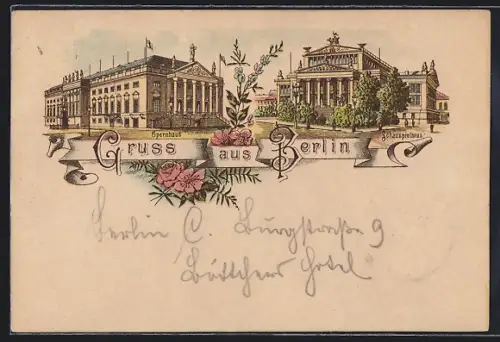 Opernhaus
Schauspielhaus
Gruss aus Berlin
Berlin C. Burgstraße 9
Böttchers Hotel